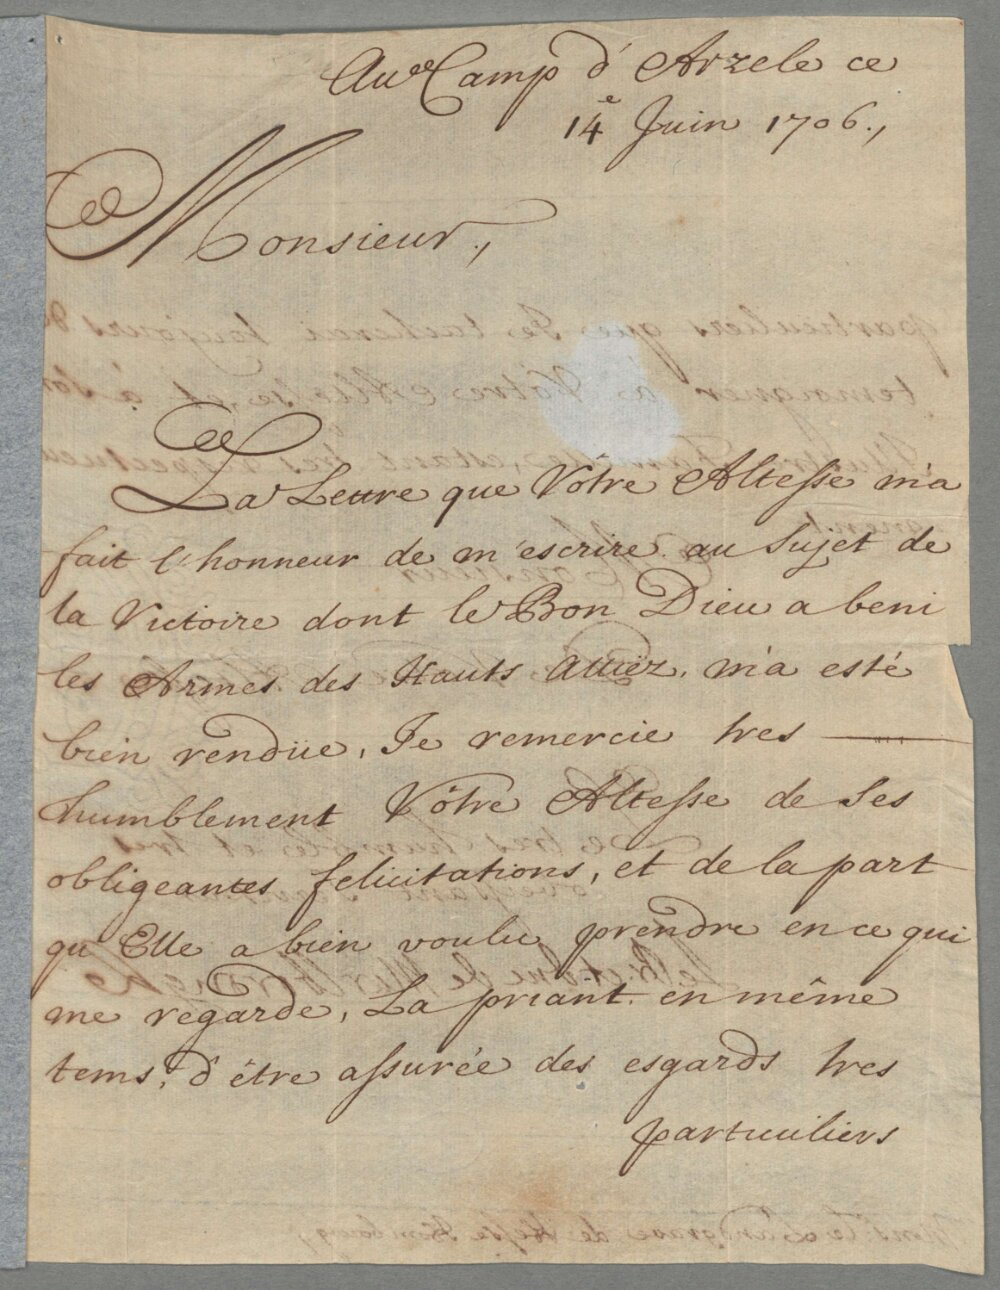 Au Camp d'Arzele ce
14e Juin 1706.,
Monsieur.,
La Lettre que Vôtre Altesse m'a
fait l'honneur de m'escrire au Sujet de
la Victoire dont le Bon Dieu a beni
les Armes des Hauts Alliéz, m'a esté
bien rendüe, Je remercie tres
humblement Vôtre Altesse de Ses
obligeantes felicitations, et de la part
qu'Elle a bien voulu prendre en ce qui
me regarde, La priant en même
tems, d'être assurée des esgards tres
particuliers